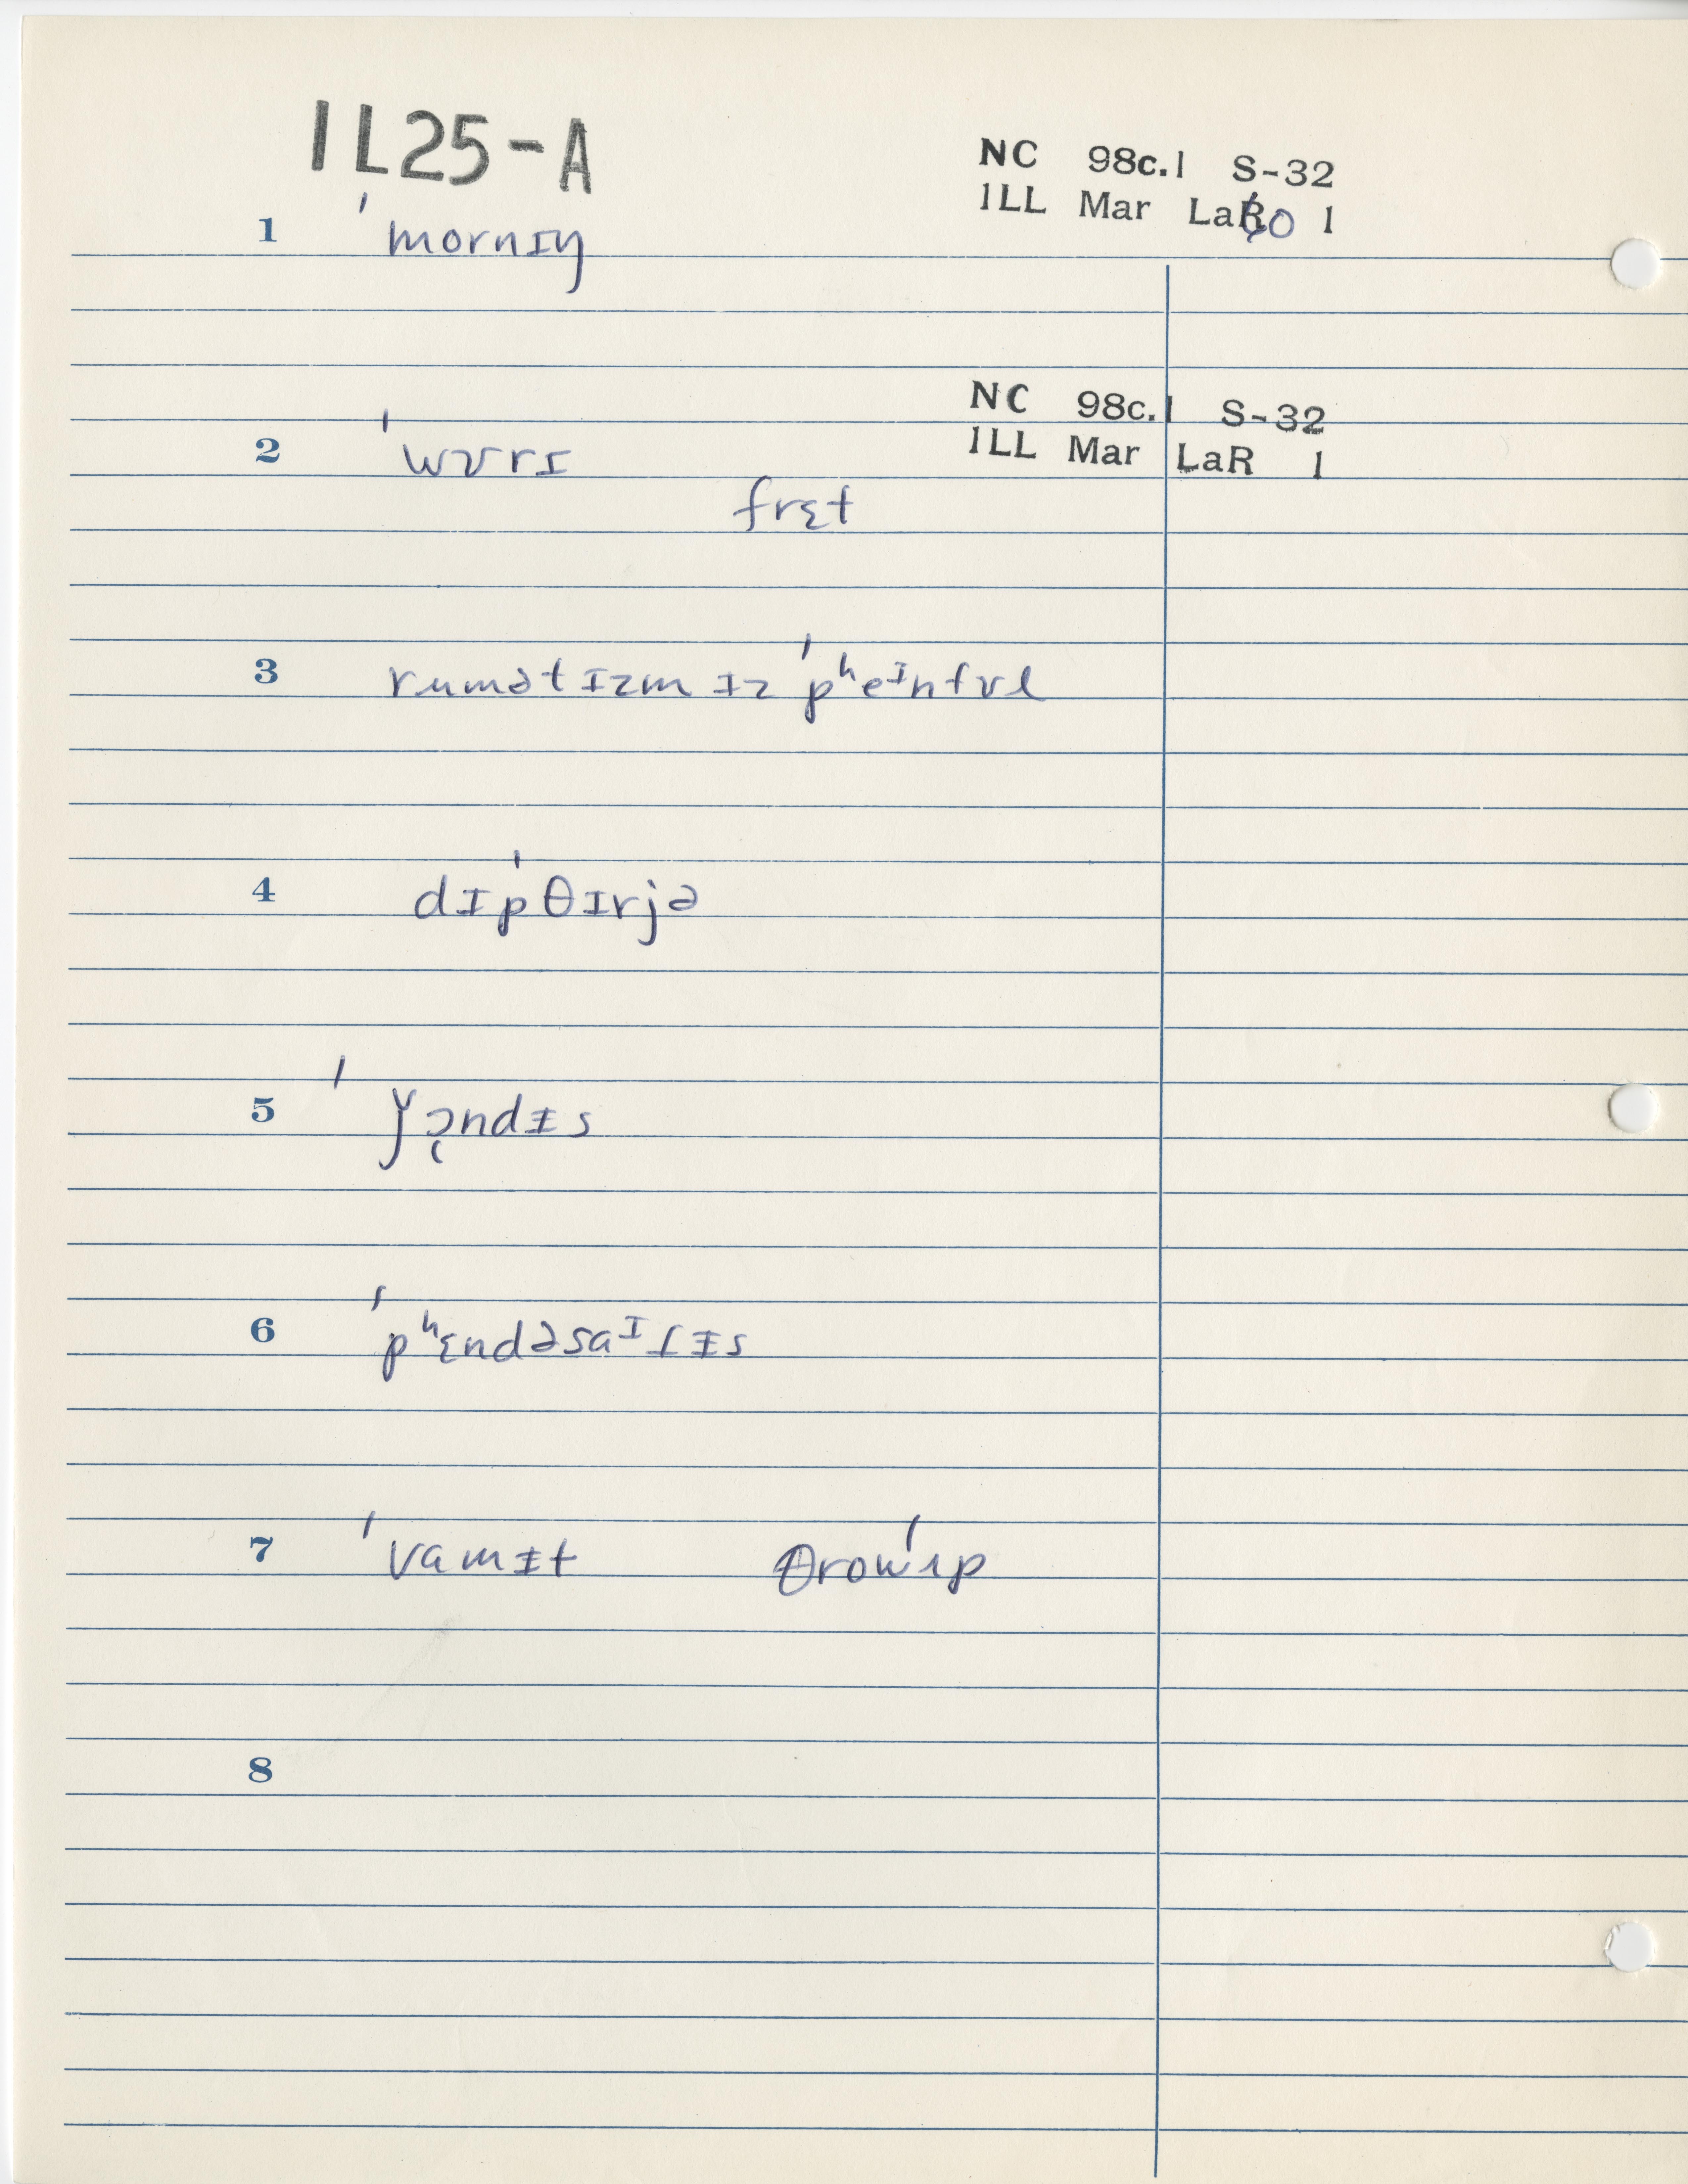 1L25-A
NC 98c.1 S-32
ILL Mar LaCo 1
1 ˈmornɪŋ
NC 98c.1 S-32
ILL Mar LaR 1
2 ˈwʊrɪ
frɛt
3 rumətɪzm ɪz ˈpʰeᴵnfʊl
4 dɪpˈθɪrjə
5 ˈǰɔ̨ndɨs
6 ˈpʰɛndəsaᴵɾɨs
7 ˈvamɨt θrowˈʌp
8